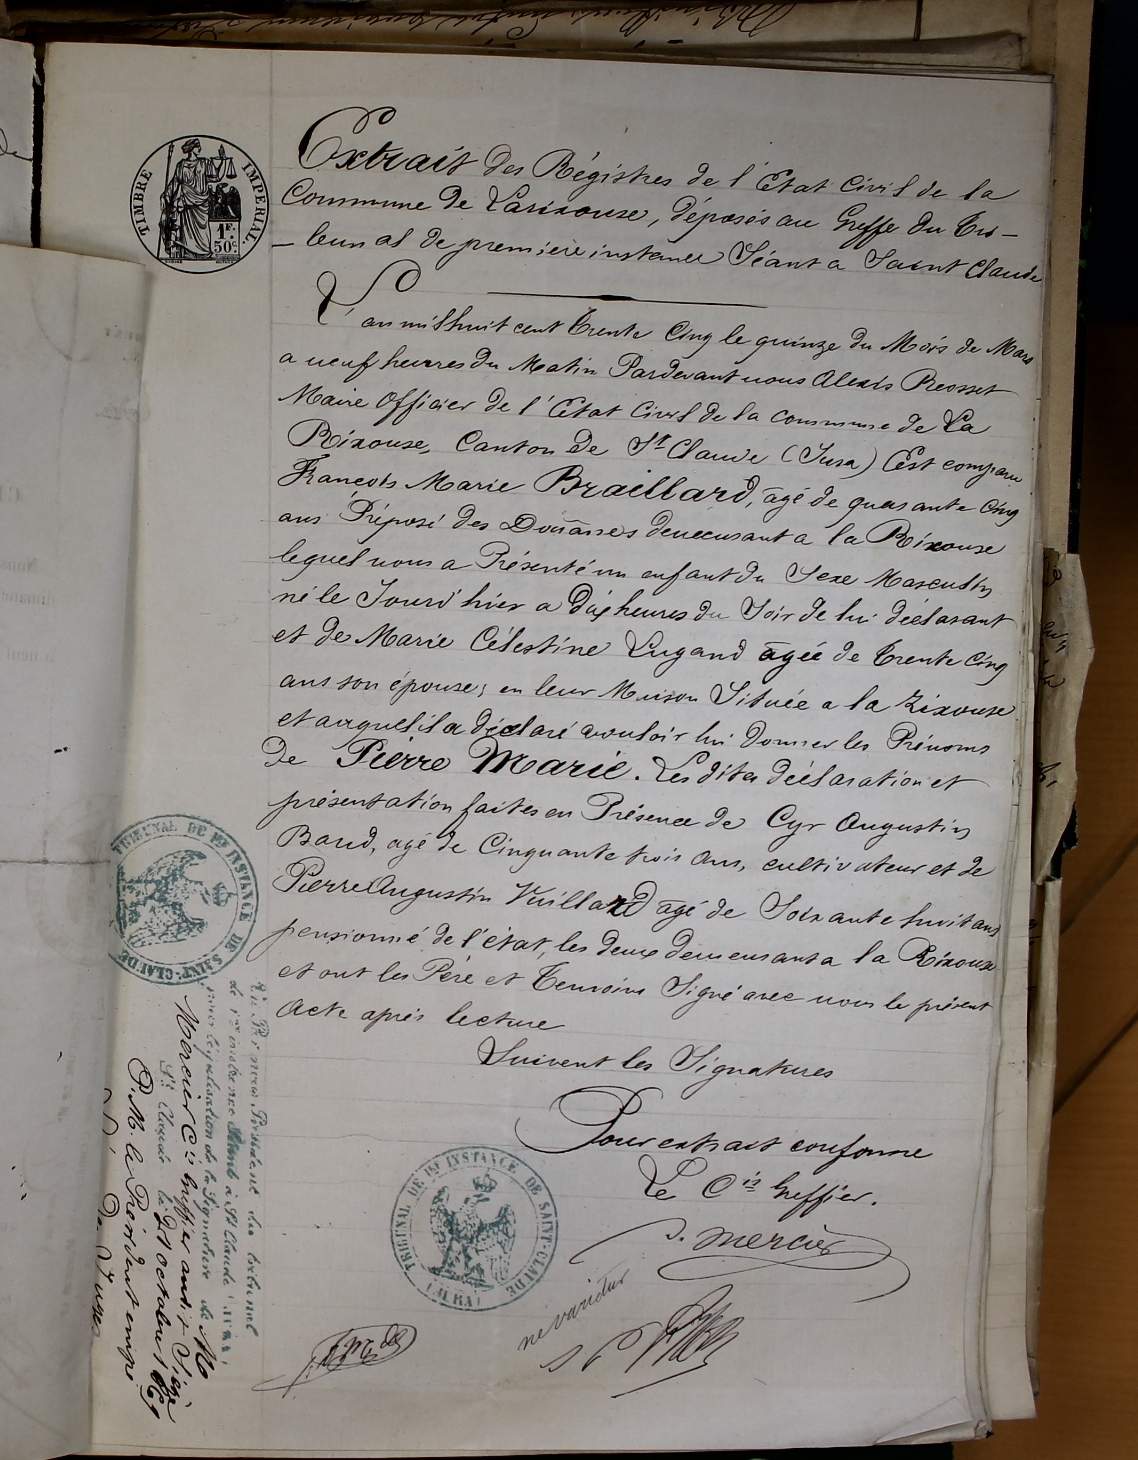 TIMBRE IMPERIAL.
1F. 50c.
Extrait des Régistres de l'Etat Civil de la
Commune de Larixouse, déposés au Greffe du Tri-
-bunal de premiere instance Séant a Saint Claude
L'an mil huit cent Trente Cinq le quinze du Mois de Mars
a neuf heures du Matin Pardevant nous Alexis Reosset
Maire Officier de l'Etat Civil de la commune de La
Rixouse, Canton de St Claude (Jura) Est comparu
François Marie Braillard, agé de quarante Cinq
ans Préposé des Douanes demeurant a la Rixouse
lequel nous a Présenté un enfant du Sexe Masculin
né le Jourd'hier a dix heures du Soir de lui déclarant
et de Marie Célestine Lugand agée de Trente Cinq
ans son épouse, en leur Maison Située a la Rixouse
et auquel il a déclaré vouloir lui donner les Prénoms
de Pierre Marie. Les dites déclaration et
présentation faites en Présence de Cyr Augustin
Baud, agé de Cinquante trois ans, cultivateur et de
Pierre Augustin Vuillard agé de Soixante huit ans
pensionné de l'état, les deux demeurant a la Rixouse
et ont les Père et Temoins Signé avec nous le présent
Acte après lecture
Suivent les Signatures
Pour extrait conforme
Le Cis Greffier.
J. Mercier
ne varietur
TRIBUNAL DE 1RE INSTANCE DE SAINT-CLAUDE
(JURA)
TRIBUNAL DE 1RE INSTANCE DE SAINT-CLAUDE
Président du tribunal
de 1re instance Séant à St Claude (Jura)
légalisation de la Signature de M
Mercier Cis Greffier audit Siège
St Claude le 21 octobre 1869
P. M. le Président empé